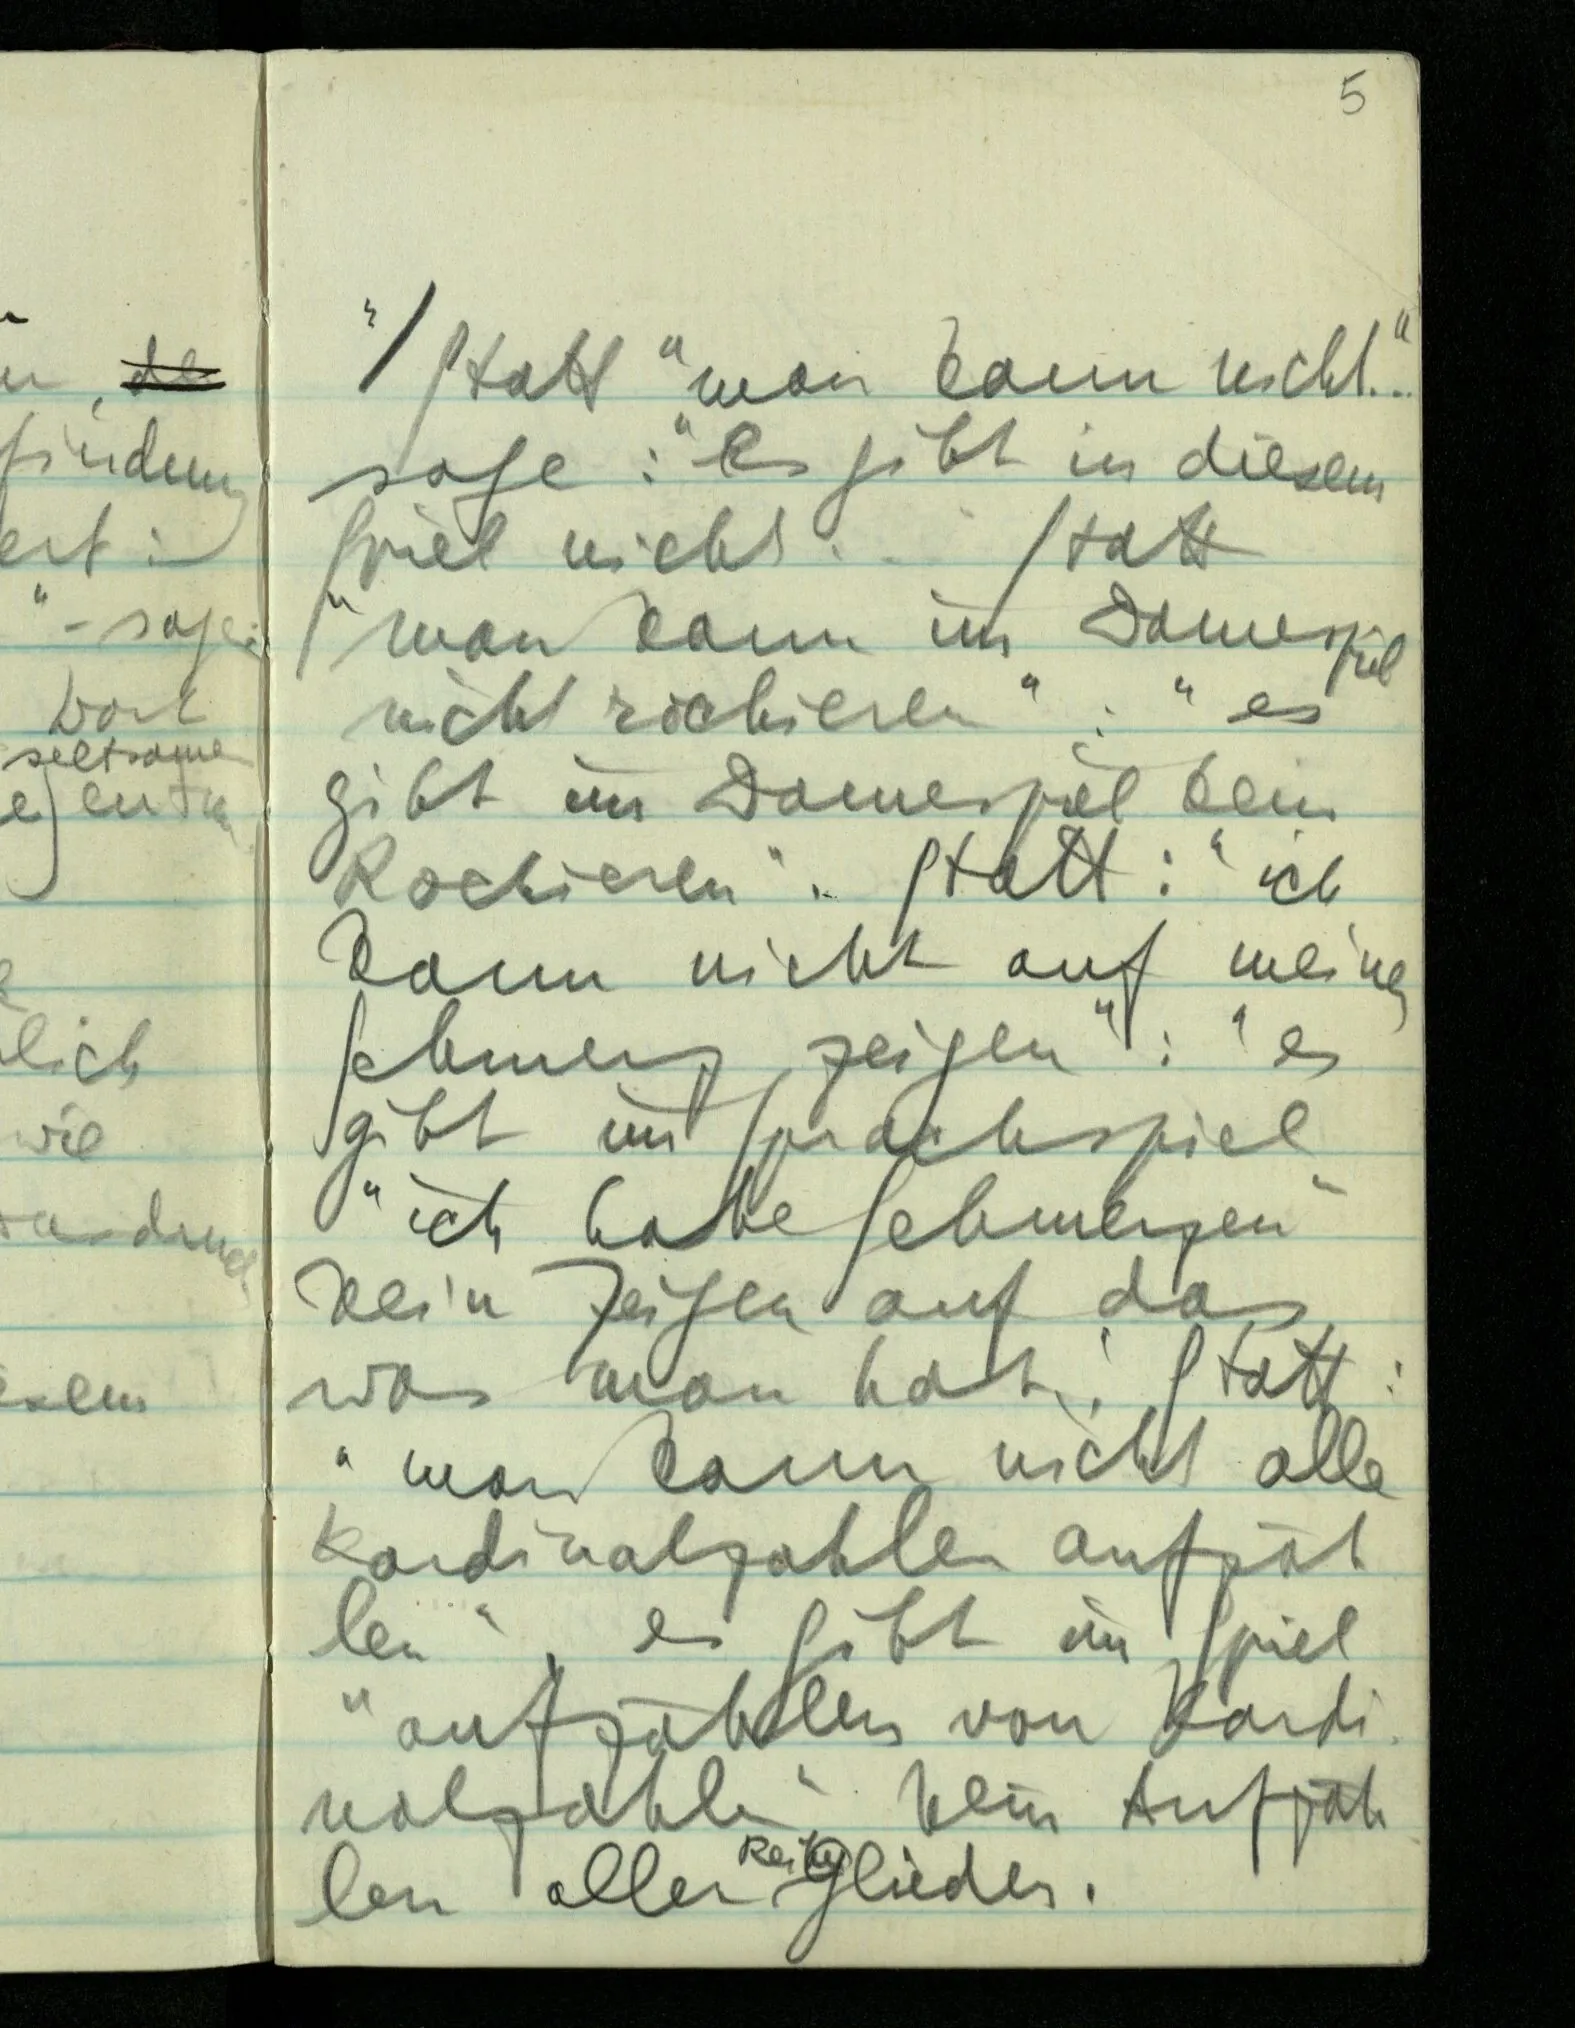 5
" / Statt "man kann nicht.."
sage: "Es gibt in diesem
Spiel nicht . . . Statt
"man kann im Damespiel
nicht rochieren" : "es
gibt im Damespiel kein
Rochieren". Statt: "ich
kann nicht auf meinen
Schmerz zeigen" : "es
gibt im Sprachspiel
"ich habe Schmerzen"
kein Zeigen auf das
was man hat". Statt:
"man kann nicht alle
Kardinalzahlen aufzäh
len", es gibt im Spiel
"aufzählen von Kardi
nalzahlen" kein Aufzäh
len aller Reihen
Glieder.
findung
ert :
" – sage:
Wort
seltsame
lich
wie